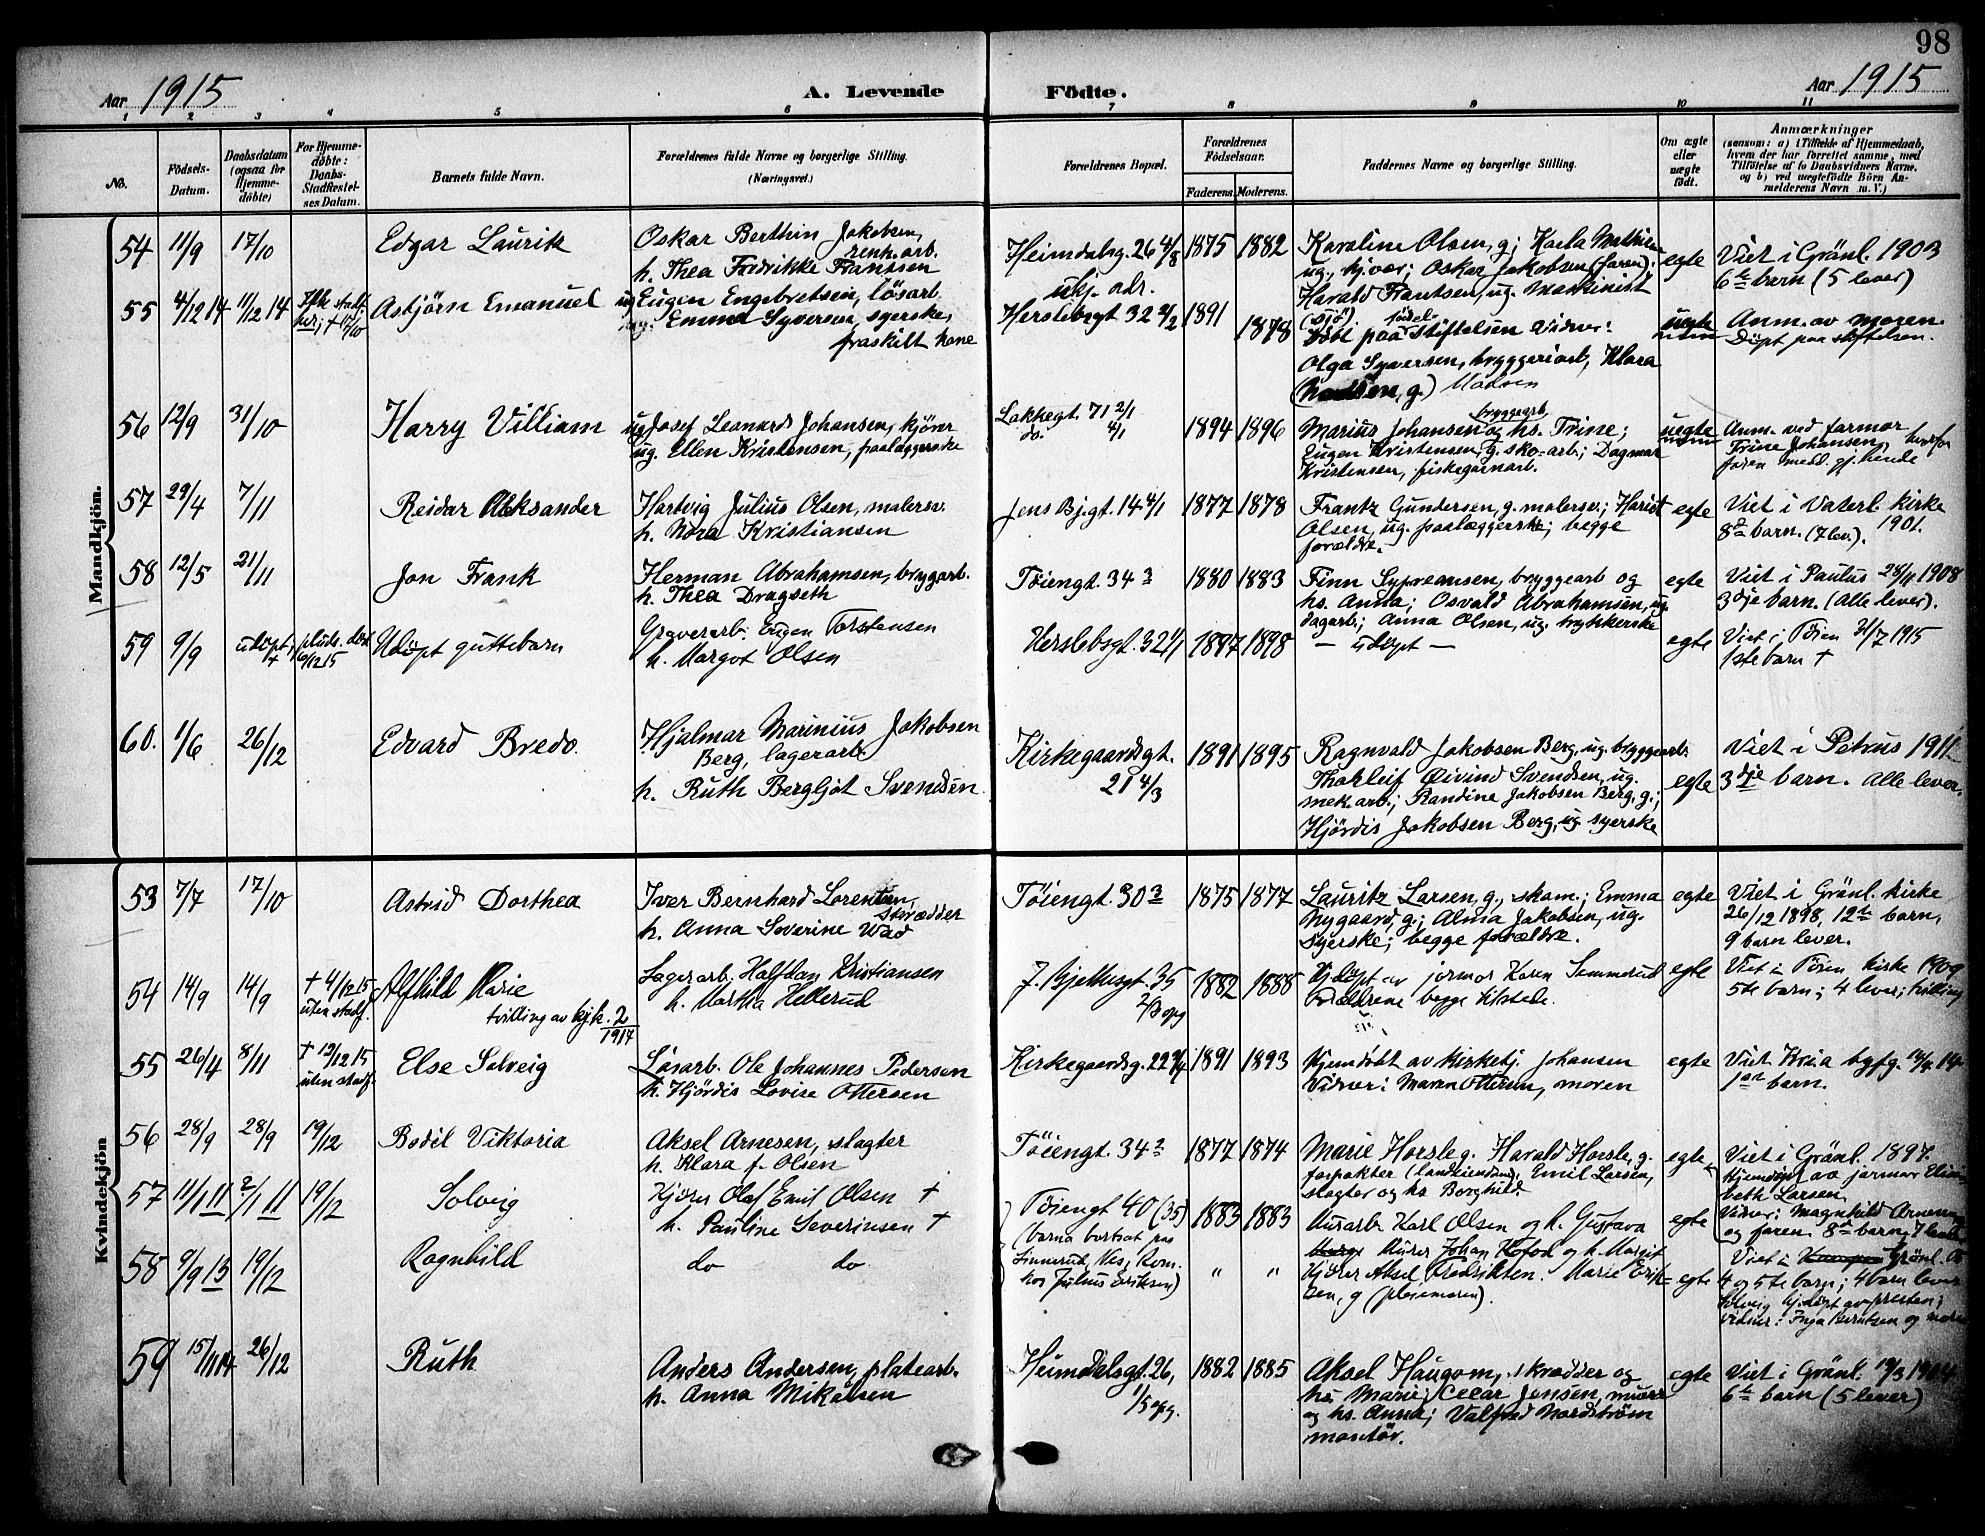 98
Aar 1915 A. Levende Födte. Aar 1915
1 2 3 4 5 6 7 8 9 10 11
No.
Födsels-Datum.
Daabsdatum (ogsaa for Hjemme-døbte)
For Hjemme-døbte: Daabs-Stadfæstel-ses Datum.
Barnets fulde Navn.
Forældrenes fulde Navne og borgerlige Stilling.
(Næringsvei.)
Forældrenes Bopæl.
Forældrenes Födselsaar.
Faderens. Moderens.
Faddernes Navne og borgerlige Stilling.
Om ægte eller uægte födt.
Anmærkninger
(saasom: a) i Tilfælde af Hjemmedaab,
hvem der har forrettet samme, med
Tilföielse af to Daabsvidners Navne,
og b) ved uægtefödte Börn An-
melderens Navn m. V.)
Mandkjön.
54 11/9 17/10 Edgar Laurik
Oskar Berthin Jakobsen,
renh. arb.
h. Thea Fredrikke Frantsen
Heimdalsg. 26 4/8 1875 1882
Karoline Olsen, g; Karla Mathisen
ug., hj.vær; Oskar Jakobsen (faren);
Harald Frantsen, ug. maskinist
egte
Viet i Grønl. 1903
6te barn (5 lever)
55 4/12 14 11/12 14 Asbjörn Emanuel
ug Eugen Engebretsen, lösarb.
Emma Syversen syerske,
fraskilt kone
ukj. adr.
Herslebsgt 32 1891 1878
Döbt paa födsel-stiftelsen Vidner:
Olga Syversen, bryggeriarb, Klara
Madsen
uegte
Anm. av moren.
Döpt paa stiftelsen.
56 12/9 31/10 Harry Villiam
ug Josef Leonard Johansen, kjörer
ug. Ellen Kristensen, paalæggerske
Lakkegt. 71 2/1
do. 4/1
1894 1896
Marius Johansen bryggearb. og hs. Trine;
Eugen Kristensen, g. sko-arb; Dagmar
Kristensen, fiskegarnarb.
uegte
Anm. ved farmor
Trine Johansen, hvorfor
faren medd. gj. hende
57 29/4 7/11 Reidar Aleksander
Hartvig Julius Olsen, malersv.
h. Nora Kristiansen
Jens Bj.gt. 14 4/1 1877 1878
Frantz Gundersen, g. malersv; Harist
Olsen, ug. paalæggerske; begge
forældre.
egte
Viet i Vaterl. kirke
8de barn. (7 lev). 1901.
58 12/5 21/11 Jon Frank
Herman Abrahamsen, brygarb.
h. Thea Dragseth
Töiengt. 34 3 1880 1883
Finn Sypreansen, bryggearb og
hs. Anna; Osvald Abrahamsen, ug.
dagarb; Anna Olsen, ug. trykkerske
egte
Viet i Paulus 28/11 1908
3dje barn. (Alle lever).
59 9/9 udöpt, + pluds. död 6/12 15 Udöpt guttebarn
Graverarb. Eugen Torstensen
h. Margot Olsen
Herslebsgt. 32 1/1 1897 1898
— udöpt —
egte
Viet i Töien 31/7 1915
1ste barn +
60. 1/6 26/12 Edvard Bredo.
Hjalmar Marinius Jakobsen
Berg, lagerarb.
h. Ruth Bergljot Svendsen
Kirkegaardsgt.
21 4/3
1891 1895
Ragnvald Jakobsen Berg, ug. bryggearb.
Thorleif Øivind Svendsen, ug.
mek.arb.; Randine Jakobsen Berg, g.;
Hjördis Jakobsen Berg, ug. syerske
egte
Viet i Petrus 1911
3dje barn. Alle lever.
Kvindekjön
53 7/7 17/10 Astrid Dorthea
Iver Bernhard Lorentzen,
skrædder
h. Anna Severine Wad
Töiengt. 30 3 1875 1877
Lauritz Larsen, g., skom.; Emma
Nygaard, g.; Alma Jakobsen, ug.
syerske; begge forældre.
egte
Viet i Grønl. kirke
26/12 1898, 12te barn,
9 barn lever.
54 14/9 14/9 + 4/12 15 uten stadf. Alfhild Marie
tvilling av kjk. 2/1917
Lagerarb. Halfdan Kristiansen
h. Martha Hellerud
J. Bjelkesgt. 35
2/3 opg
1882 1888
Hj.döpt av jormor Karen Semmerud
Forældrene begge tilstede.
egte
Viet i Töien kirke 1909
5te barn; 4 lever; tvilling
55 26/4 8/11 + 13/12 15 uten stadf. Else Solveig
Lösarb. Ole Johannes Pedersen
h. Hjördis Lovise Ottersen
Kirkegaardsg. 22 1891 1893
Hjemdöbt av kirketj. Johansen
Vidner: Maren Ottersen, moren
egte
Viet Kria bgfg. 14.
1ste barn.
56 28/9 28/9 19/12 Bodil Viktoria
Aksel Arnesen, slagter
h. Klara f. Olsen
Töiengt. 34 2 1877 1874
Marie Horsle g. Harald Horsle, g.
forpakter (landeiendom), Emil Larsen,
slagter og hs Borghild.
egte
Viet i Grønl. 1897.
Hjemdöpt av jormor Elisa-
beth Larsen.
Vidner: Magnhild Arnesen
og faren. 8de barn, 7 lever
57 11/1 11 2/1 11 19/12 Solveig
Kjörer Olaf Emil Olsen +
h. Pauline Severinsen +
Töiengt 40 (35)
(barna bortsat paa
Linnerud, Nes, Rom.
hos Julius Eriksen)
1883 1883
Murarb. Karl Olsen og h. Gustava
Murer Johan Kofod og h. Margit
Kjörer Aksel Fredriksen. Marie Erik-
sen, g (pleiemoren).
egte
Viet i Grønl.
4 og 5te barn; 4 barn lever
Solveig hj.döpt av presten;
vidner: Inga Berntsen og moren
58 9/9 13 19/12 Ragnhild
do do
" "
egte
59 15/11 14 26/12 Ruth
Anders Andersen, platearb.
h. Anna Mikalsen
Heimdalsgt. 26,
1/5 opg.
1882 1885
Aksel Haugom, skrædder og
hs Marie; Oscar Jensen, murer
og hs. Anna; Valfred Nordström
montör.
egte
Viet i Grønl. 19/3 1904
6te barn (5 lever)